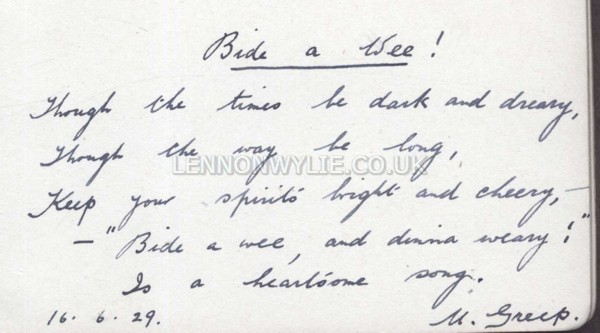 Bide a Wee!
Though the times be dark and dreary,
Though the way be long,
LENNONWYLIE.CO.UK
Keep your spirits bright and cheery, —
— "Bide a wee, and dinna weary!"
Is a heartsome song.
16. 6. 29. M. Greep.